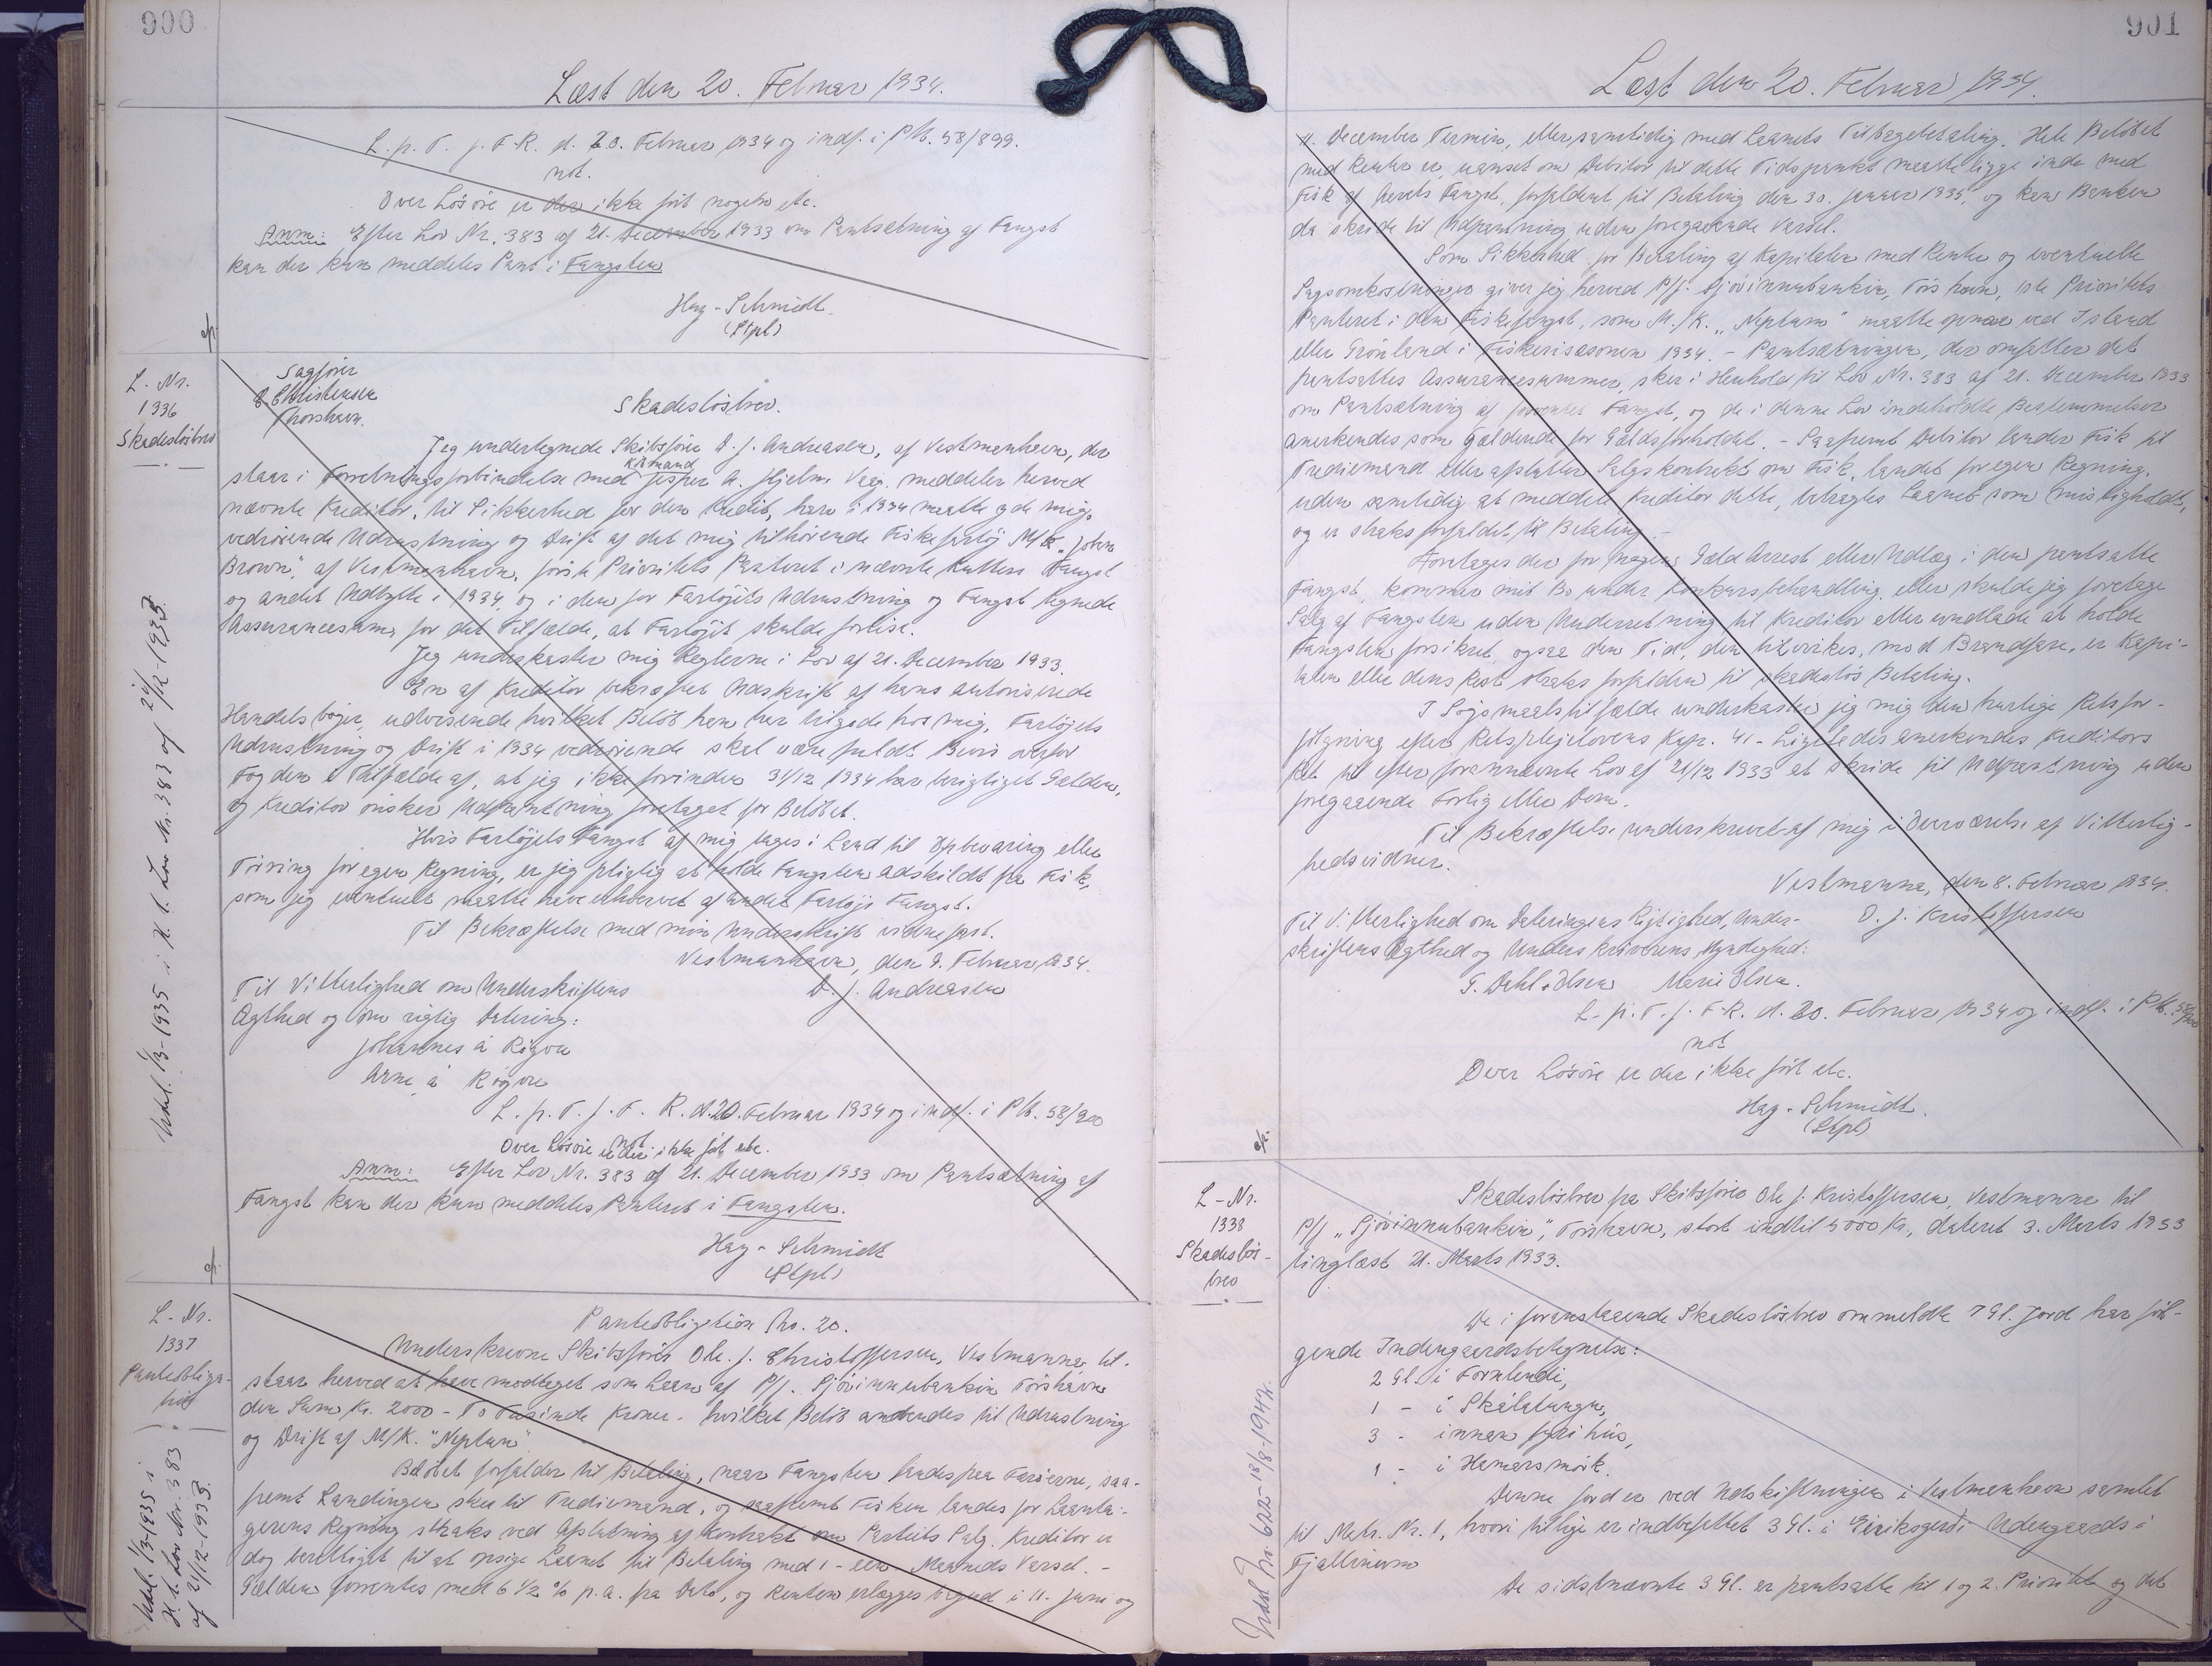 900
Læst den 20. Februar 1934.
L. p. T. f. F. R. d. 20. Februar 1934 og indf. i Pb. 58/899.
not.
Over Løsøre er der ikke ført nogen etc.
Anm: Efter Lov Nr. 383 af 21. December 1933 om Pantsætning af Fangst
kan der kun meddeles Pant i Fangsten
Hag-Schmidt
(Stpl)
L. Nr.
1336
Skadesløsbrev
Sagfører
C. Christensen
Thorshavn.
Skadesløsbrev.
Jeg undertegnede Skibsfører D. J. Andreasen, af Vestmanhavn, der
staar i Forretningsforbindelse med Købmand Jesper A. Hjelm Vaag, meddeler herved
nævnte Kreditor, til Sikkerhed for den Kredit, han i 1934 maatte yde mig,
vedrørende Udrustning og Drift af det mig tilhørende Fiskefartøj M/K „John
Brown“, af Vestmanhavn, første Prioritets Panteret i nævnte Kutters Fangst
og andet Udbytte i 1934, og i den for Fartøjets Udrustning og Fangst tegnede
Assurancesum, for det Tilfælde, at Fartøjet skulde forlise.
Jeg underkaster mig Reglerne i Lov af 21. December 1933.
En af Kreditor bekræftet Udskrift af hans autoriserede
Handelsbøger, udvisende hvilket Beløb han har tilgode hos mig, Fartøjets
Udrustning og Drift i 1934 vedrørende skal være fuldt Bevis overfor
Fogden i Tilfælde af, at jeg ikke forinden 31/12 1934 har berigtiget Gælden,
og Kreditor ønsker Udpantning foretaget for Beløbet.
Hvis Fartøjets Fangst af mig tages i Land til Opbevaring eller
Tørring for egen Regning, er jeg pligtig at holde Fangsten adskildt fra Fisk,
som jeg eventuelt maatte have erhvervet af andet Fartøjs Fangst.
Til Bekræftelse med min Underskrift vidnefast.
Vestmanhavn, den 9. Februar 1934.
Til Vitterlighed om Underskriftens D. J. Andreasen
Ægthed og om rigtig Datering:
Johannes á Rógvu
Arne á Rógvu
L. p. T. f. F. R. d. 20. Februar 1934 og indf. i Pb. 58/900
not
Over Løsøre er der ikke ført etc.
Anm: Efter Lov Nr. 383 af 21. December 1933 om Pantsætning af
Fangst kan der kun meddeles Panteret i Fangsten.
Hag-Schmidt
(Stpl)
Udsl. 1/3-1935 i H. t. Lov Nr. 383 af 21/12-1933.
L-Nr.
1337
Panteobliga-
tion
Panteobligation No. 20.
Underskrevne Skibsfører Ole. J. Christoffersen, Vestmanna til-
staar herved at have modtaget som Laan af P/f. Sjóvinnubankin Tórshavn
den Sum Kr. 2000 - To Tusinde Kroner - hvilket Beløb anvendes til Udrustning
og Drift af M/K. "Neptun".
Beløbet forfalder til Betaling, naar Fangsten landes paa Færøerne, saa-
fremt Landingen sker til Trediemand, og saafremt Fisken landes for Laanta-
gerens Regning straks ved Afslutning af Kontrakt om Partiets Salg. Kreditor er
dog berettiget til at opsige Laanet til Betaling med 1 - een - Maaneds Varsel. -
Gælden forrentes med 6 1/2 % p. a. fra Dato, og Renten erlægges bagud i 11. Juni og
Udsl. 1/3-1935 i
H. t. Lov Nr. 383
af 21/12-1933.
901
Læst den 20. Februar 1934.
11. December Termin, eller samtidig med Laanets Tilbagebetaling. Hele Beløbet
med Renter er, uanset om Debitor til dette Tidspunkt maatte ligge inde med
Fisk af Aarets Fangst, forfaldent til Betaling den 30. Januar 1935, og kan Banken
da skride til Udpantning uden foregaaende Varsel.
Som Sikkerhed for Betaling af Kapitalen med Renter og eventuelle
Sagsomkostninger giver jeg herved P/f. Sjóvinnubankin, Tórshavn, 1ste Prioritets
Panteret i den Fiskefangst, som M./K. „Neptun“ maatte opnaa ved Island
eller Grønland i Fiskerisæsonen 1934. - Pantsætningen, der omfatter det
pantsattes Assurancesummer, sker i Henhold til Lov Nr. 383 af 21. December 1933
om Pantsætning af Fangst, og de i denne Lov indeholdte Bestemmelser
anerkendes som gældende for Gældsforholdet. - Saafremt Debitor lander Fisk til
Trediemand eller afslutter Salgskontrakt om Fisk, landet for egen Regning,
uden samtidig at meddele Kreditor dette, betragtes Laanet som misligholdt,
og er straks forfaldet til Betaling. -
Foretages der for nogen Gæld Arrest eller Udlæg i den pantsatte
Fangst, kommer mit Bo under Konkursbehandling eller skulde jeg foretage
Salg af Fangsten uden Underretning til Kreditor eller undlade at holde
Fangsten forsikret, ogsaa den Tid, den tilvirkes, mod Brandfare, er Kapi-
talen eller dens Rest straks forfalden til skadesløs Betaling.
I Søgsmaalstilfælde underkaster jeg mig den hurtige Retsfor-
følgning efter Retsplejelovens Kap. 41 - Ligeledes anerkendes Kreditors
Ret til efter forannævnte Lov af 21/12 1933 at skride til Udpantning uden
foregaaende Forlig eller Dom.
Til Bekræftelse underskrevet af mig i Overværelse af Vitterlig-
hedsvidner.
Vestmanna, den 8. Februar 1934.
Til Vitterlighed om Dateringens Rigtighed, Under- O. J. Kristoffersen
skriftens Ægthed og Underskriverens Myndighed:
G. Dahl-Olsen Marie Olsen.
L. p. T. f. F. R. d. 20. Februar 1934 og indf. i Pb. 58/900
not
Over Løsøre er der ikke ført etc.
Hag-Schmidt.
(Stpl)
L-Nr.
1338
Skadesløs-
brev
Skadesløsbrev fra Skibsfører Ole J. Kristoffersen, Vestmanna til
P/f „Sjóvinnubankin“, Tórshavn, stort indtil 5000 Kr., dateret 3. Marts 1933
tinglæst 21. Marts 1933.
De i foranstaaende Skadesløsbrev ommeldte 7 Gl. Jord har føl-
gende Indengaardsbetegnelse:
2 Gl. i Fornlendi,
1 - i Skálatunga,
3 - innan fyri hús,
1 - i Hamarsmørk.
Denne Jord er ved Udskiftningen i Vestmanhavn samlet
til Matr. Nr. 1, hvori tillige er indbefattet 3 Gl. i Eiriksgerði Udengaards i
Fjallinum
De sidstnævnte 3 Gl. er pantsatte til 1 og 2. Prioritet og det
Udsl No. 622-18/8-1942.